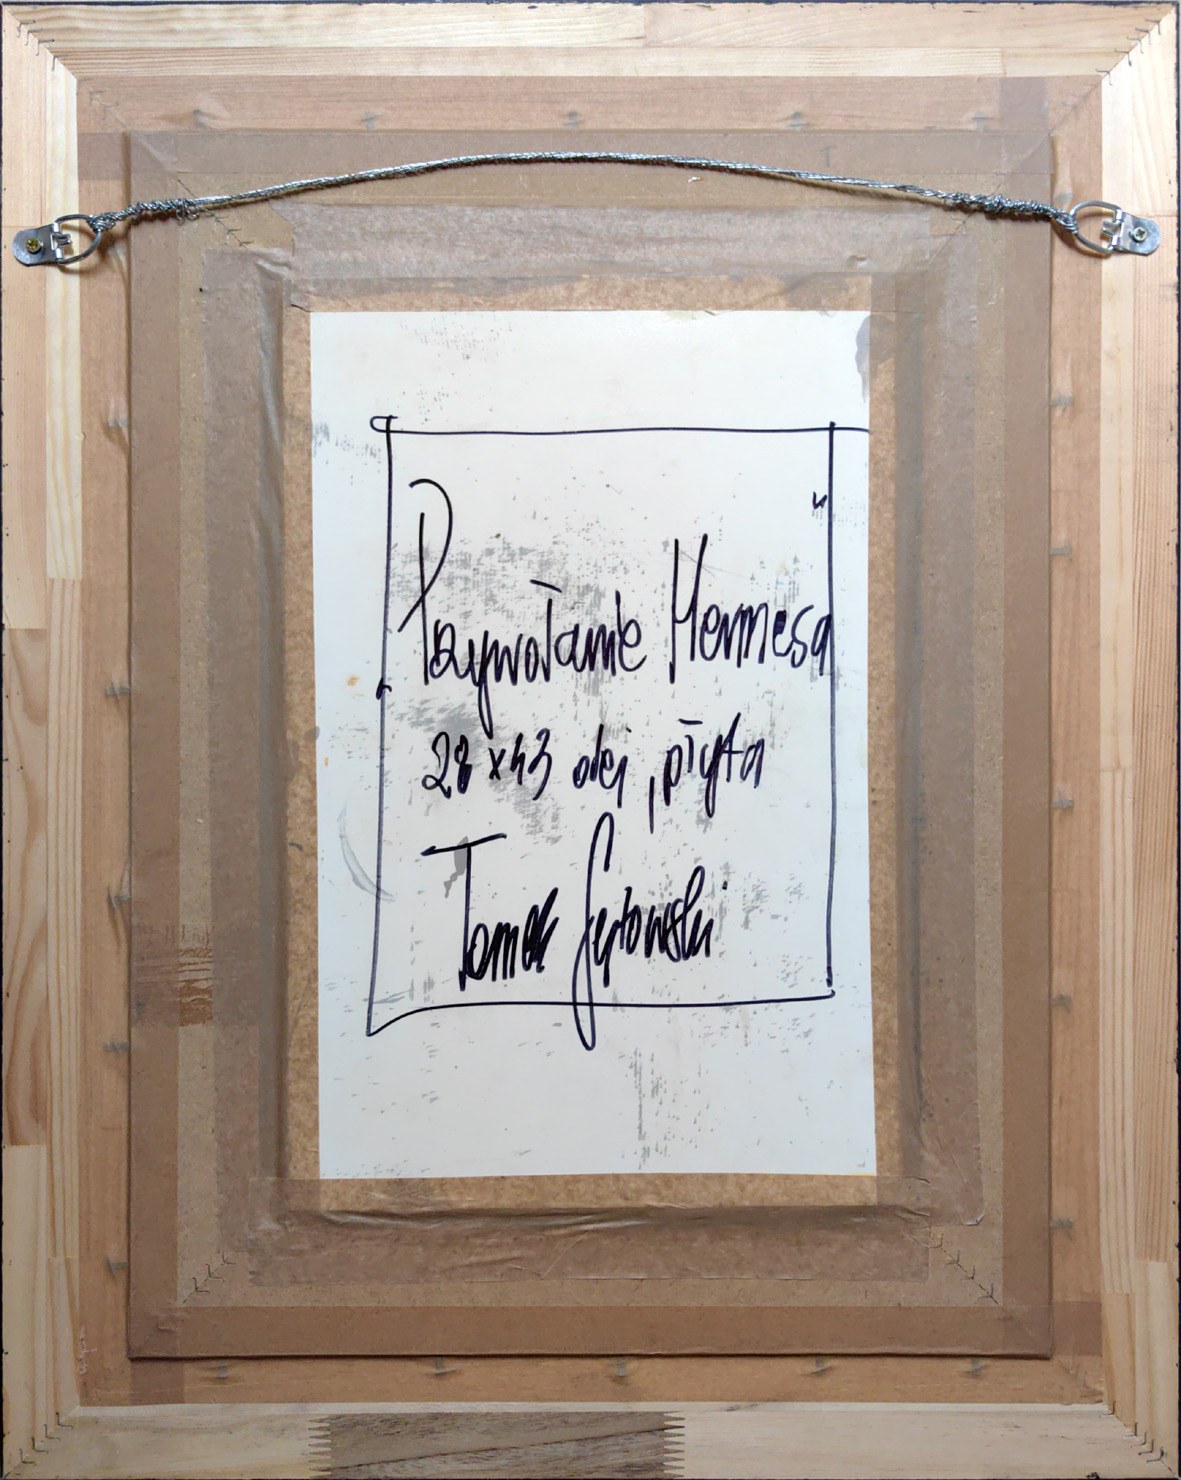 Przywołanie Hermesa"
28 x 43 olej, płyta
Tomek Sętowski